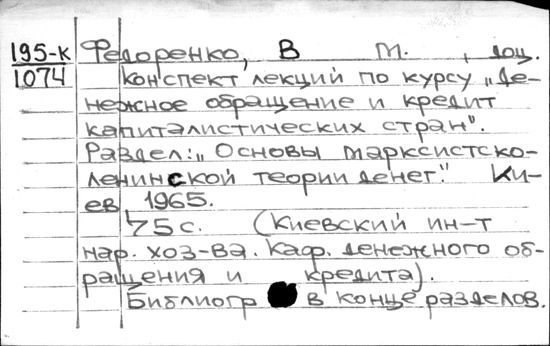 195-к Федоренко, В М., доц.
1074 Конспект лекций по курсу „Де-
нежное обращение и кредит
капиталистических стран".
Раздел: „Основы марксистско-
ленинской теории денег." Ки-
ев, 1965.
75 с. (Киевский ин-т
нар. хоз-ва. Каф. денежного об-
ращения и кредита).
Библиогр в конце разделов.